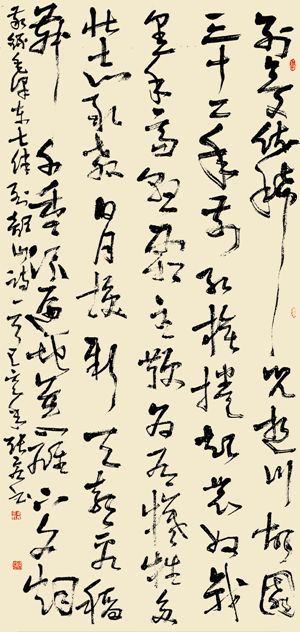 别梦依稀咒逝川故園
三十二年前红旗捲起农奴戟
黑手高悬霸主鞭为有牺牲多
壮志敢教日月换新天喜看稻
菽千重浪遍地英雄下夕烟
敬録毛泽东七律到韶山诗一首己亥张书